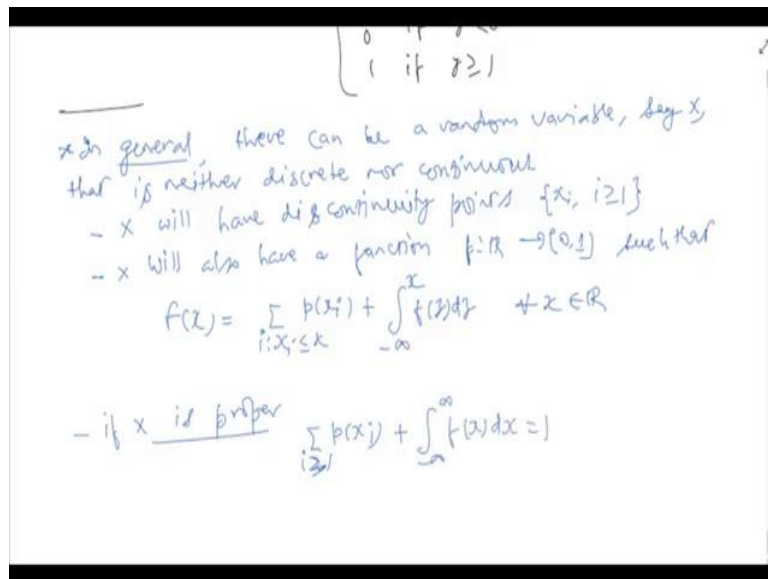 0 if
1 if z ≥ 1
* In general, there can be a random variable, say X,
that is neither discrete nor continuous
- X will have discontinuity points {x_i, i≥1}
- X will also have a function f: ℝ → [0,1] such that
F(x) = ∑_{i: x_i ≤ x} p(x_i) + ∫_{-∞}^{x} f(z) dz ∀ x ∈ ℝ
- if X is proper ∑_{i≥1} p(x_i) + ∫_{-∞}^{∞} f(x) dx = 1